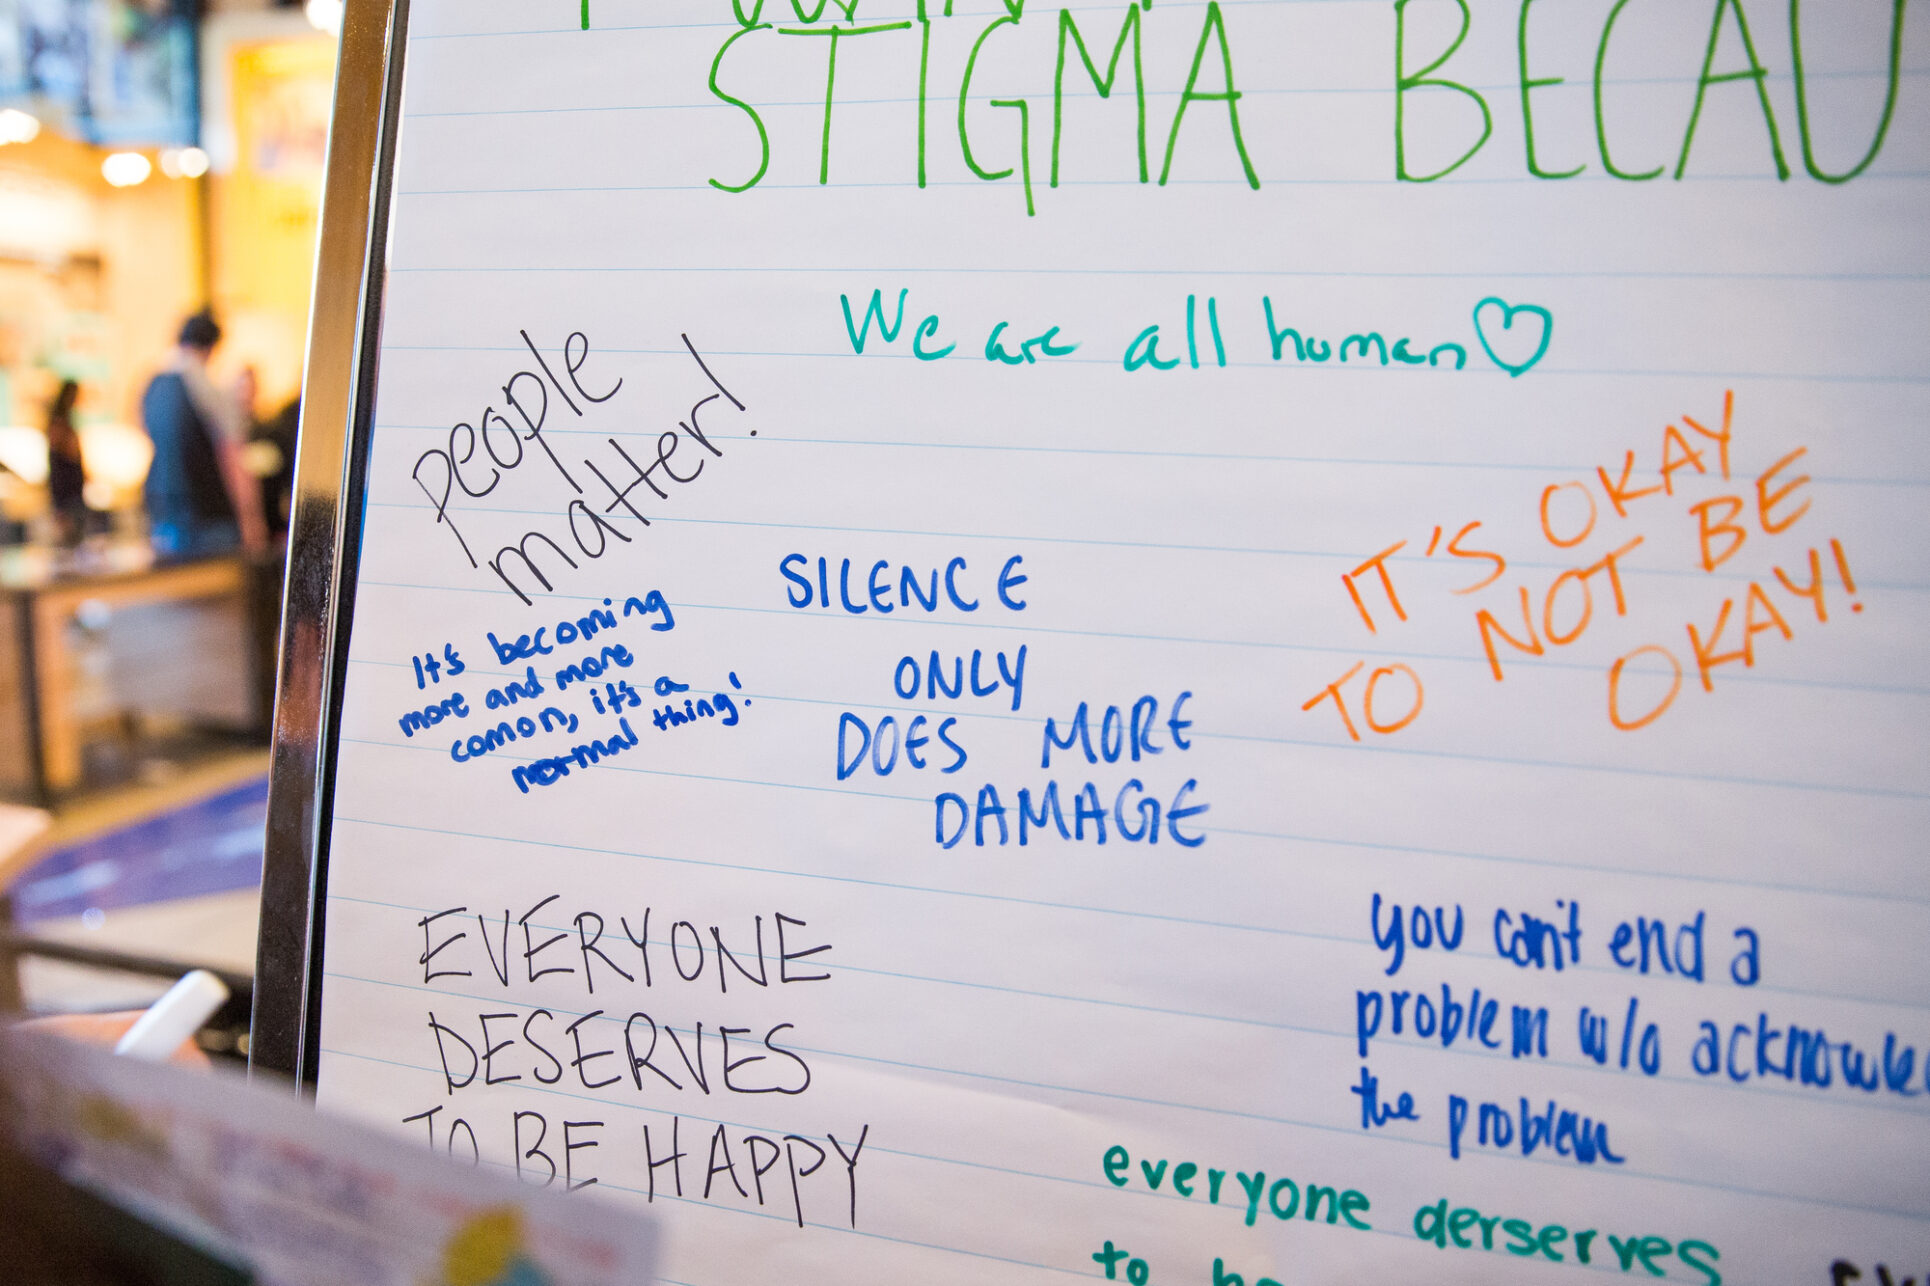 STIGMA BECAU
We are all human
people
matter!
IT'S OKAY
TO NOT BE
OKAY!
SILENCE
ONLY
DOES MORE
DAMAGE
It's becoming
more and more
comon, it's a
normal thing!
EVERYONE
DESERVES
TO BE HAPPY
you can't end a
problem w/o acknowle
the problem
everyone derserves
to